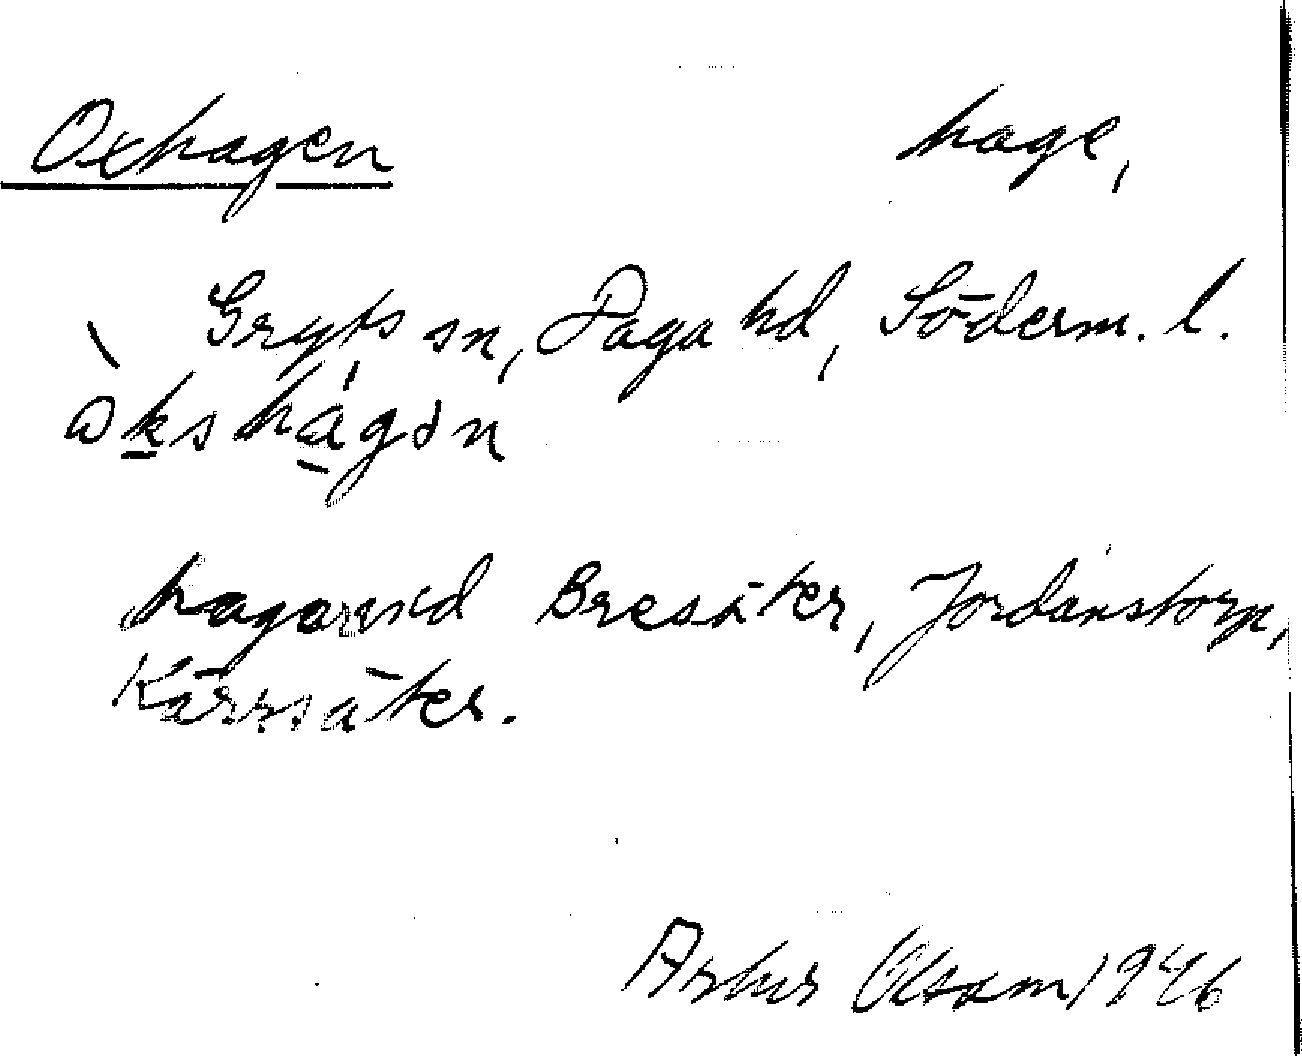 Oxhagen hage,
Gryts sn, Daga hd, Söderm. l.
ò̀kshá̱gən
hagar vid Bresäter, Jordanstorp,
Kärrsäter.
Artur Olsson 1946